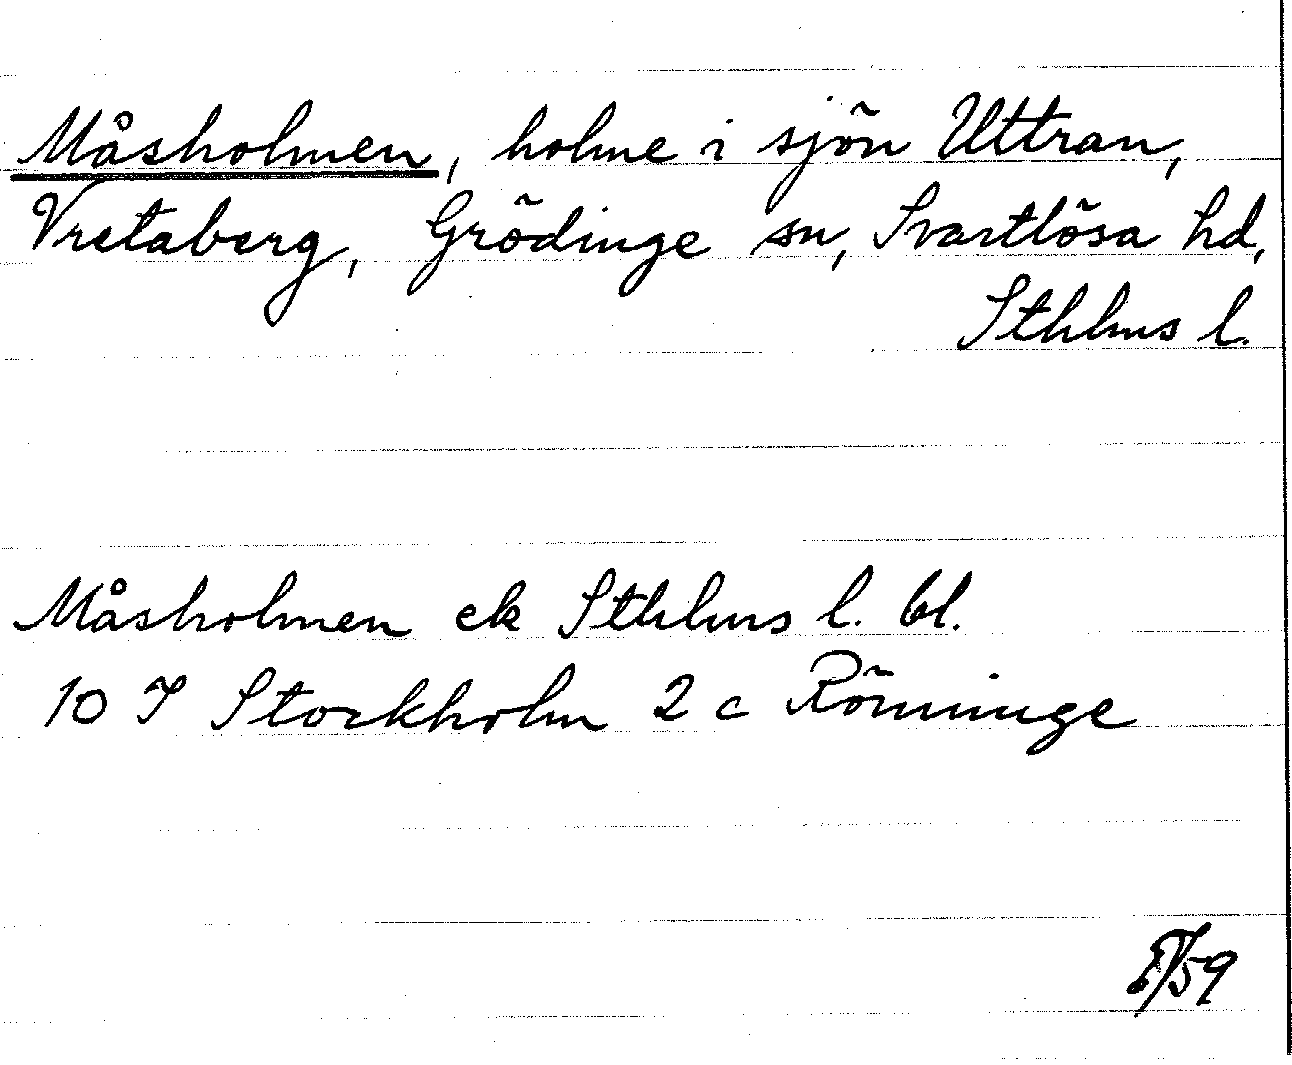 Måsholmen, holme i sjön Uttran,
Vretaberg, Grödinge sn, Svartlösa hd,
Sthlms l.
Måsholmen ek Sthlms l. bl.
10 I Stockholm 2 c Rönninge
/59